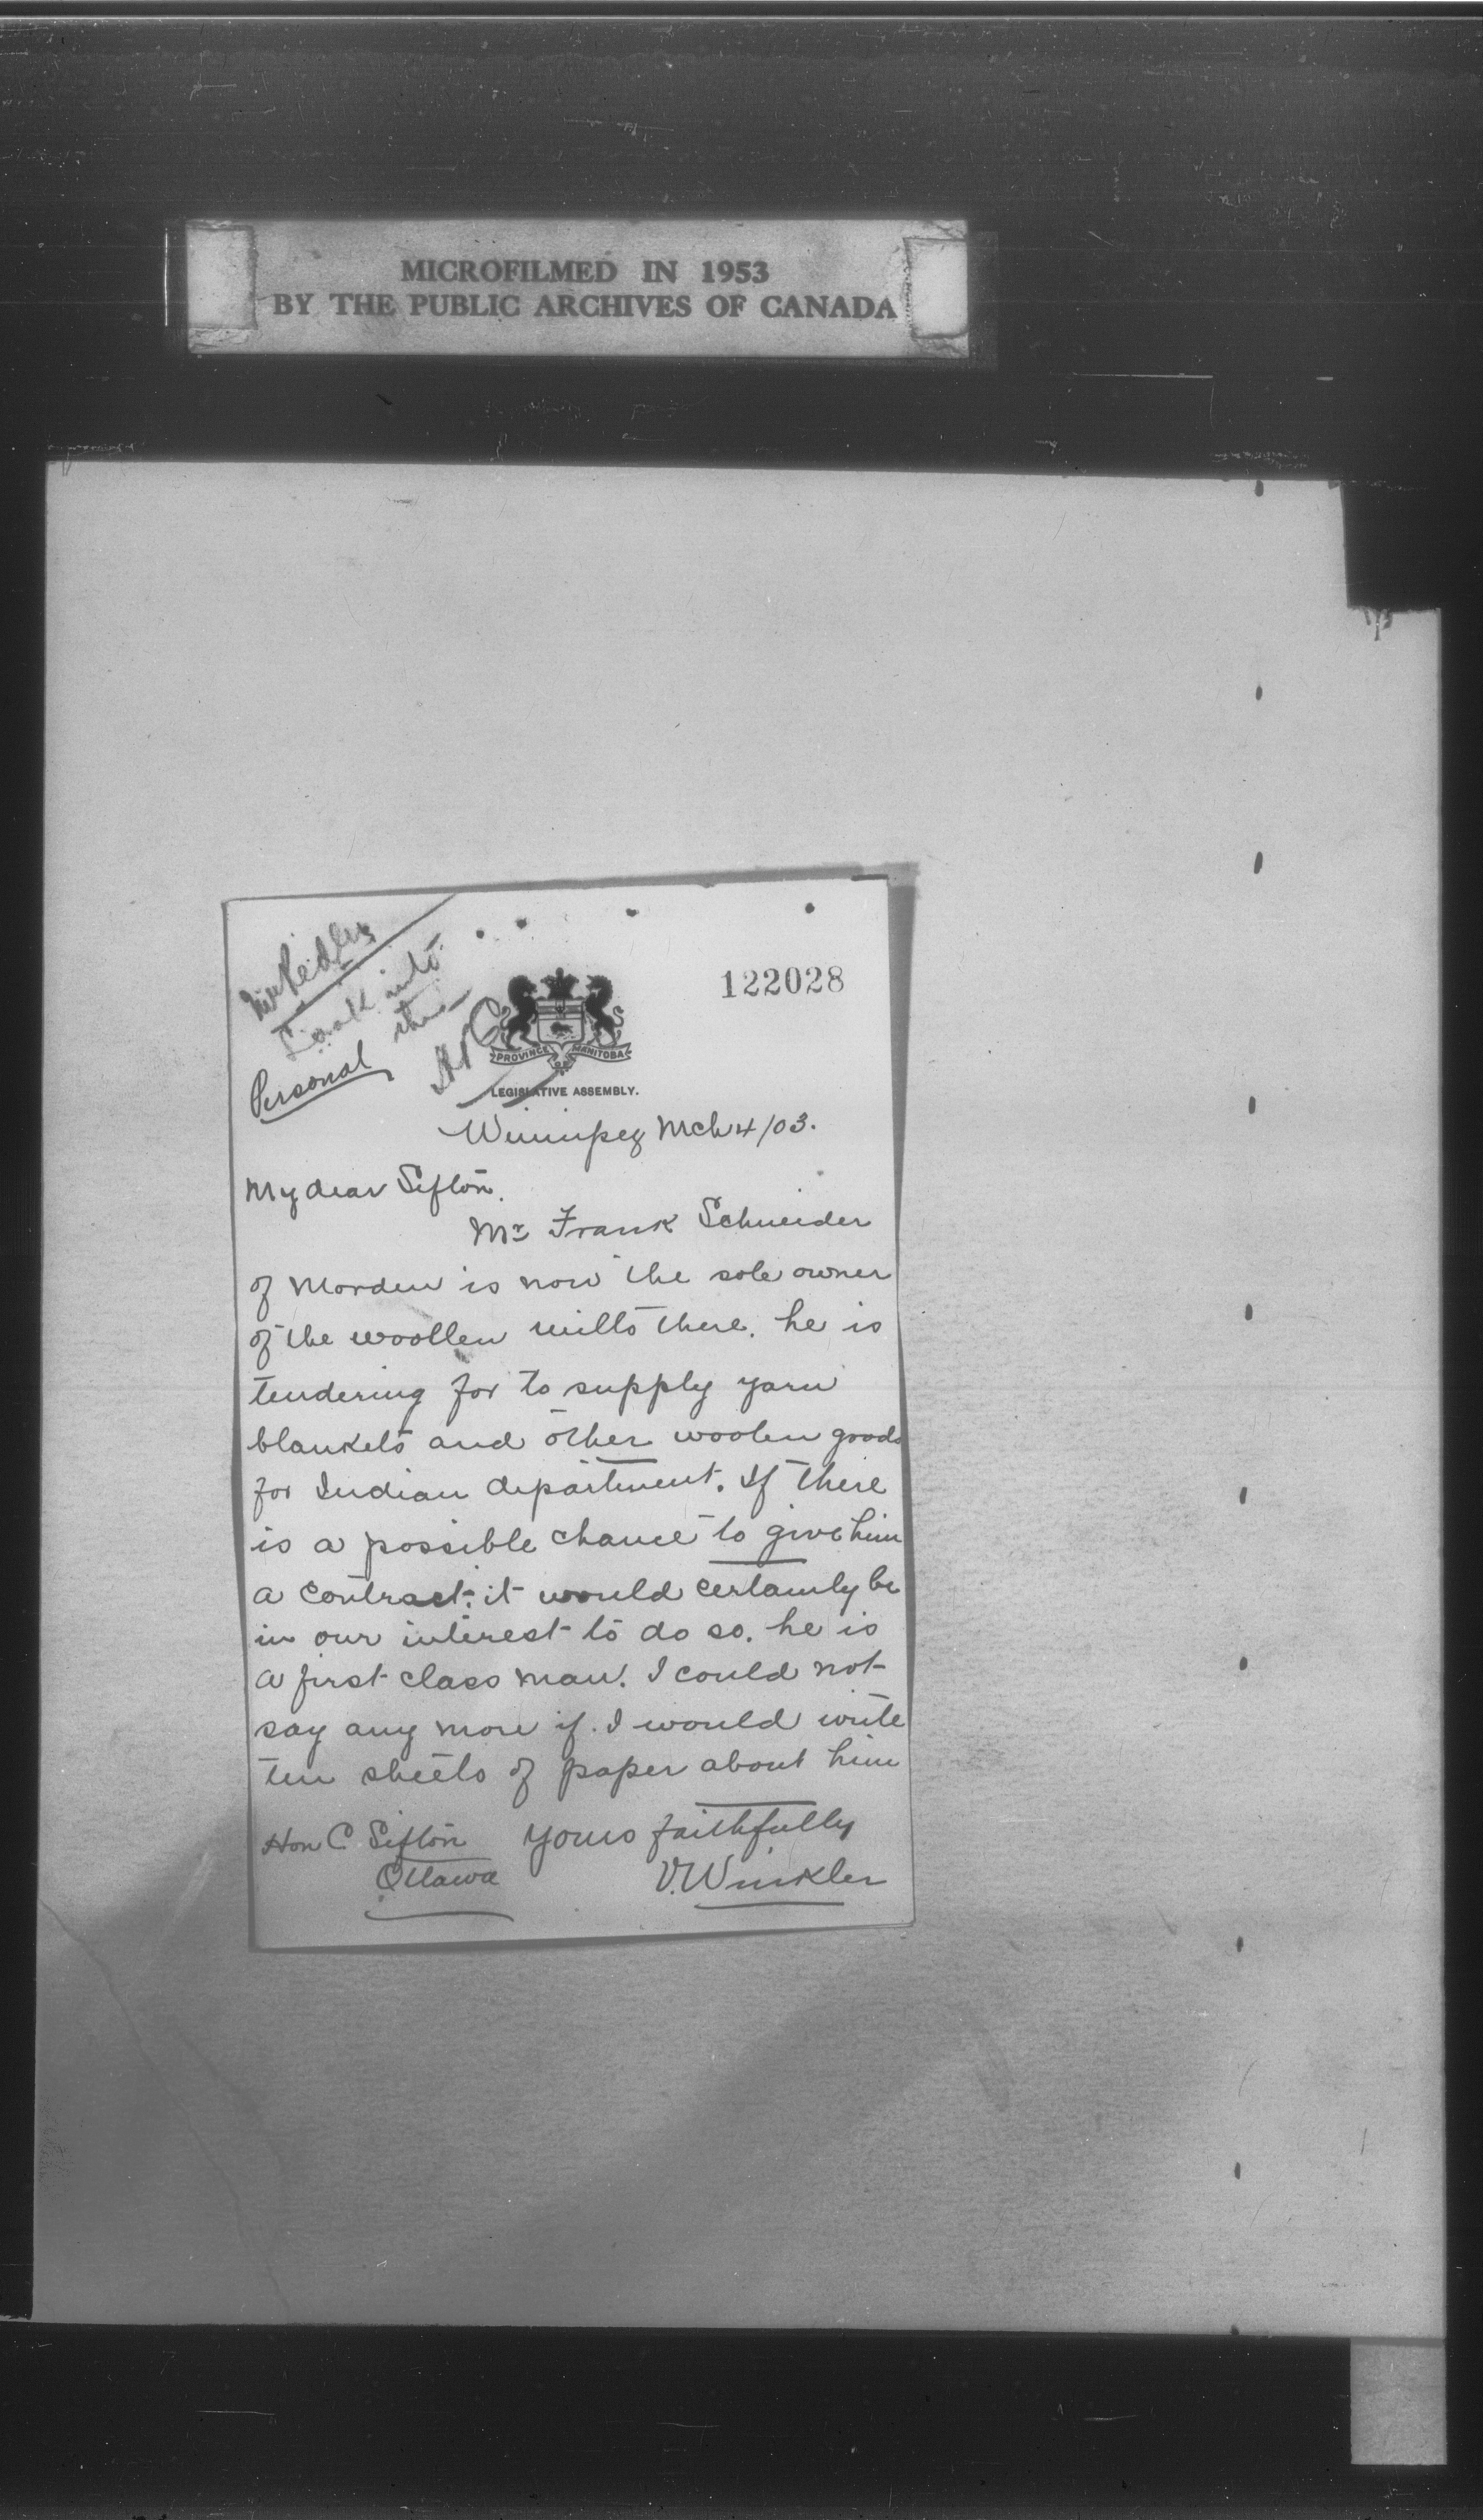 MICROFILMED IN 1953
BY THE PUBLIC ARCHIVES OF CANADA
Mr Pedley
Look into
this
Personal
122028
PROVINCE OF MANITOBA
LEGISLATIVE ASSEMBLY.
Winnipeg Mch 4/03.
My dear Sifton.
Mr Frank Schneider
of Morden is now the sole owner
of the woollen mills there. he is
tendering for to supply yarn
blankets and other woolen goods
for Indian department. If there
is a possible chance to give him
a contract. it would certainly be
in our interest to do so. he is
a first class man. I could not
say any more if I would write
ten sheets of paper about him
Hon C. Sifton Yours faithfully
Ottawa V. Winkler